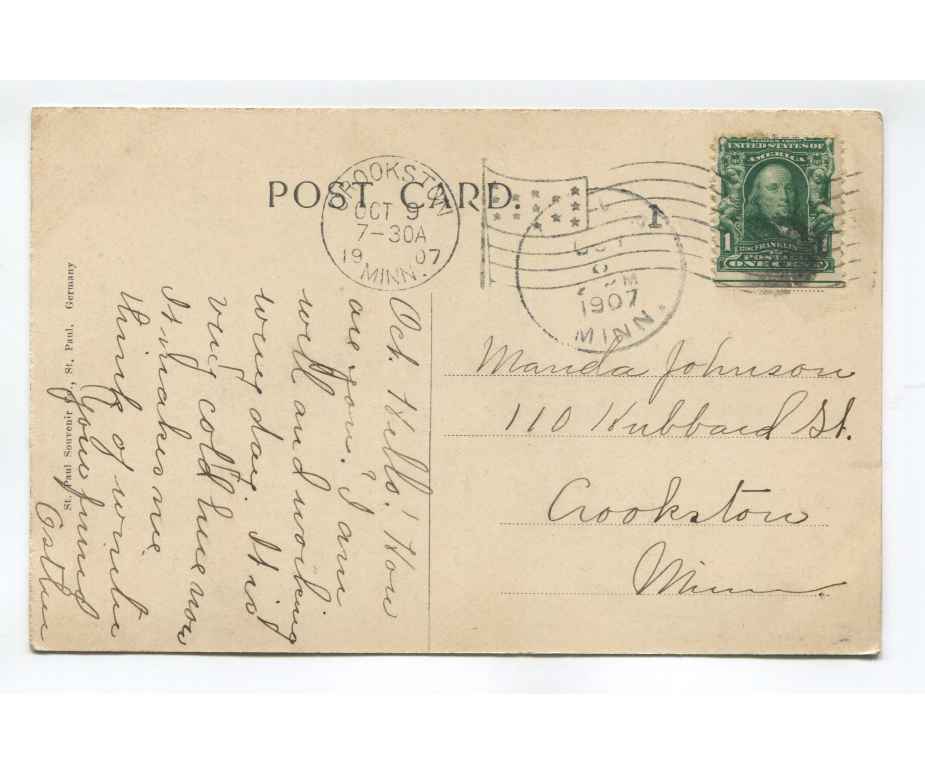 POST CARD.
CROOKSTON
OCT 9
7-30A
19 07
MINN.
1
OCT
1907
MINN.
UNITED STATES OF
AMERICA
1 1
FRANKLIN
POSTAGE
ONE CENT
Oct. Hello! How
are you. I am
well and working
every day. It is
very cold here now
It makes me
think of winter
Your friend
Esther
Manda Johnson
110 Hubbard St.
Crookston
Minn.
St. Paul Souvenir , St. Paul, Germany